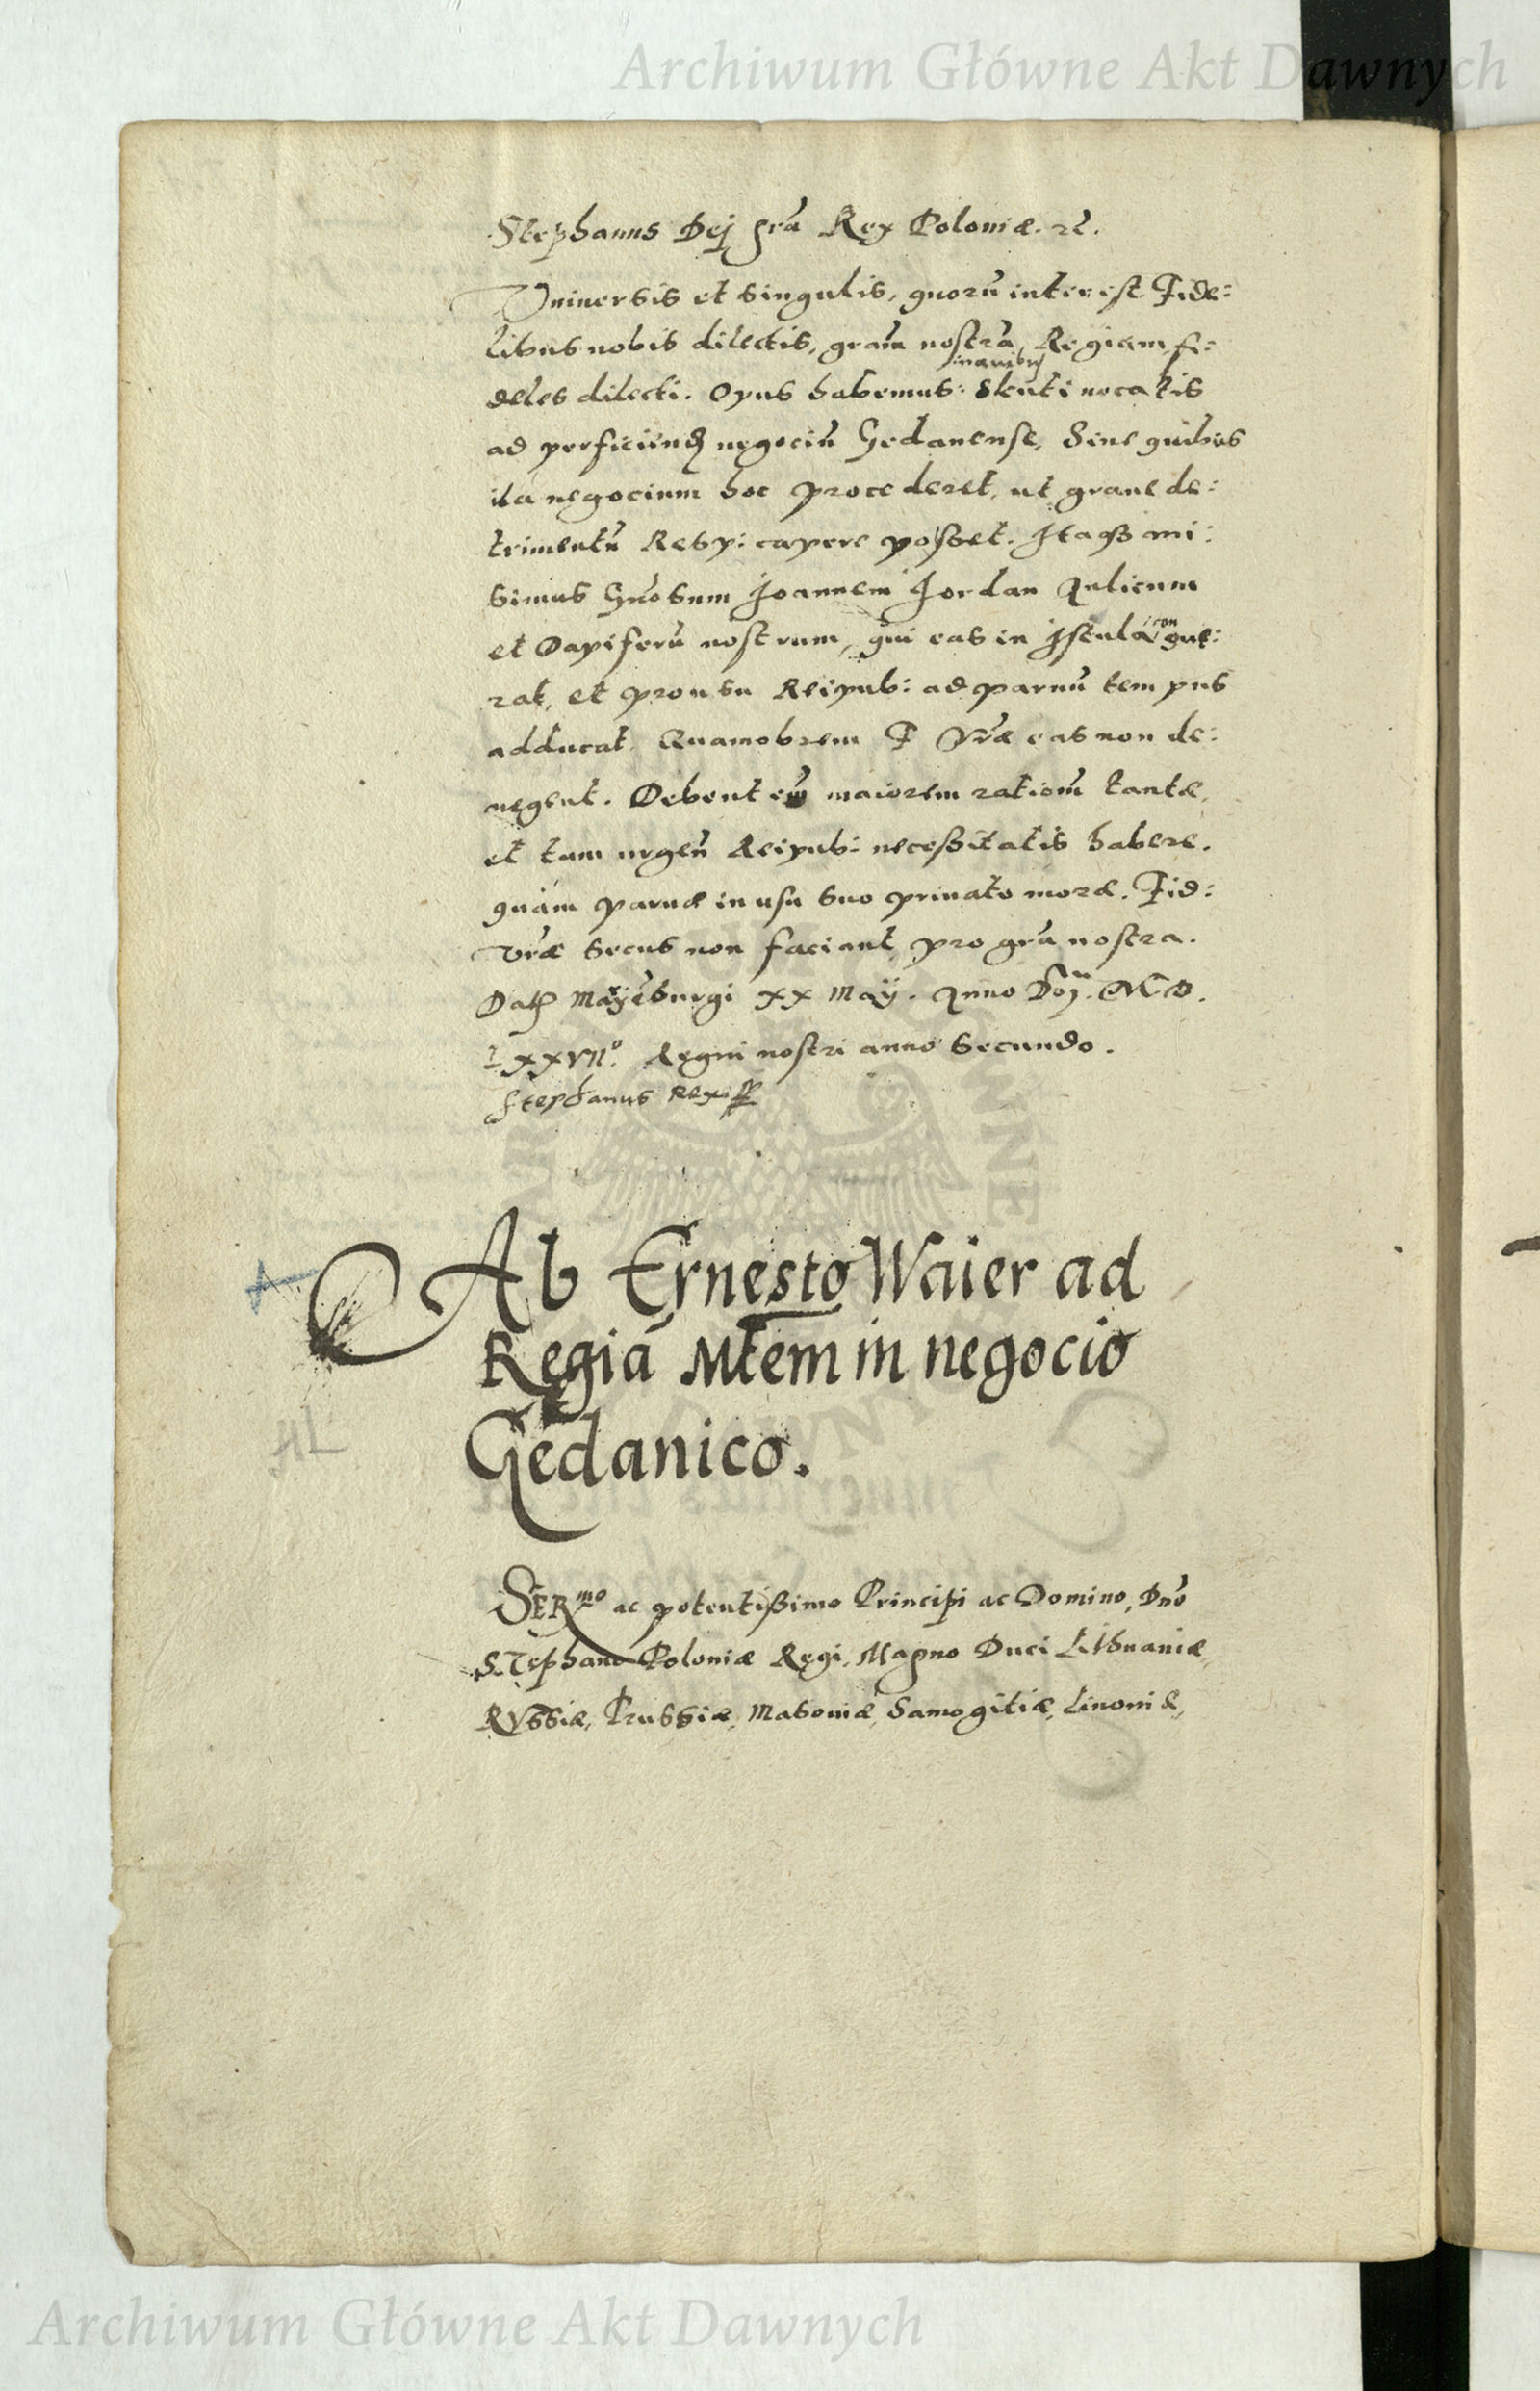 Archiwum Główne Akt Dawnych
Stephanus Dej gr̃a Rex Poloniæ. rc̃.
Vniuersis et singulis, quorũ interest Fide:
libus nobis dilectis, gratiã nostrã, Regiam, fi:
deles dilecti. Opus habemus: nauibus Skuti uocatis
ad perficiend negociũ Gedanense, Sine quibus
ita negocium hoc procederet, ut graue de:
trimentũ Resp: capere posset. Itaq3 mi:
simus Gñosum Joannem Jordan Aulicum
et Dapiferũ nostrum, qui eas in Istula con que:
rat, et pro usu Reipub: ad paruũ tempus
adducat. Quamobrem F Vr̃æ eas non de:
negent. Debent em̃ maiorem rationẽ tantæ,
et tam urgeñ Reipub: necessitatis habere.
quàm paruæ in usu suo priuato moræ. Fid:
Vr̃æ secus non faciant, pro gr̃a nostra.
Dat Mayẽburgi XX Maij. Anno Doj. M. D.
LXXVIIº. Regni nostri anno Secundo.
Stephanus Rex
Ab Ernesto Waier ad
Regiã Mtem in negocio
Gedanico.
SERmo ac potentissimo Principi ac Domino, Dño
Stephano Poloniæ Regi, Magno Duci Lithuaniæ,
Russiæ, Prussiæ, Masouiæ, Samogitiæ, Liuoniæ,
Archiwum Główne Akt Dawnych